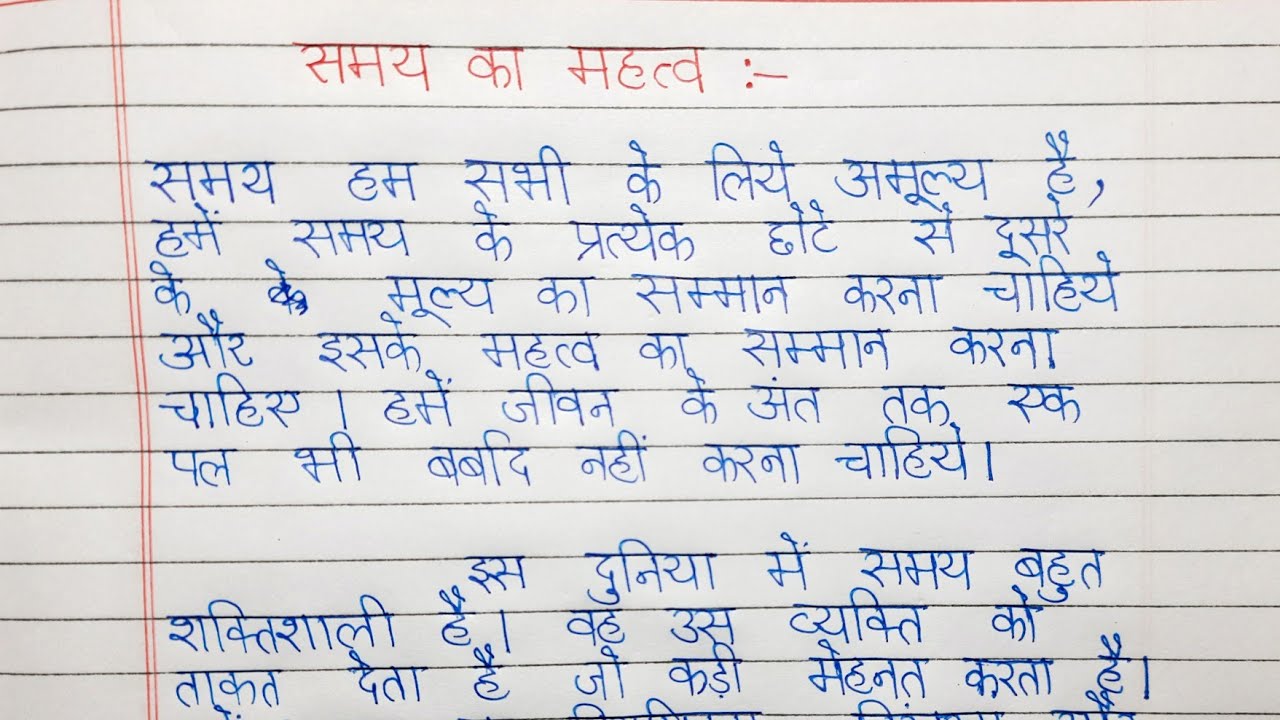 समय का महत्व :-
समय हम सभी के लिये अमूल्य है,
हमें समय के प्रत्येक छोटे से दूसरे
के के मूल्य का सम्मान करना चाहिये
और इसके महत्व का सम्मान करना
चाहिए। हमें जीवन के अंत तक एक
पल भी बर्बाद नहीं करना चाहिये।
इस दुनिया में समय बहुत
शक्तिशाली है। वह उस व्यक्ति को
ताकत देता है जो कड़ी मेहनत करता है।